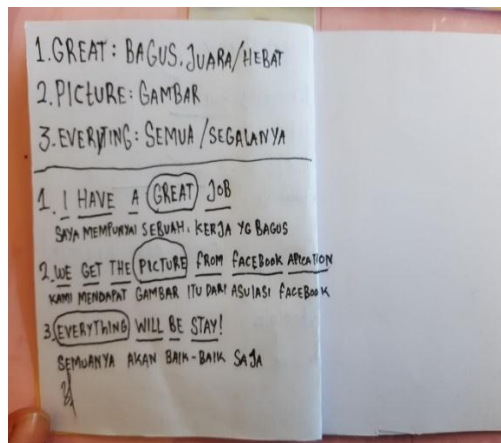 1. GREAT: BAGUS, JUARA/HEBAT
2. PICTURE: GAMBAR
3. EVERYTING: SEMUA/SEGALANYA
1. I HAVE A GREAT JOB
SAYA MEMPUNYAI SEBUAH KERJA YG BAGUS
2. WE GET THE PICTURE FROM FACEBOOK APLCATION
KAMI MENDAPAT GAMBAR ITU DARI FACEBOOK
3. EVERYTHING WILL BE STAY!
SEMUANYA AKAN BAIK-BAIK SAJA